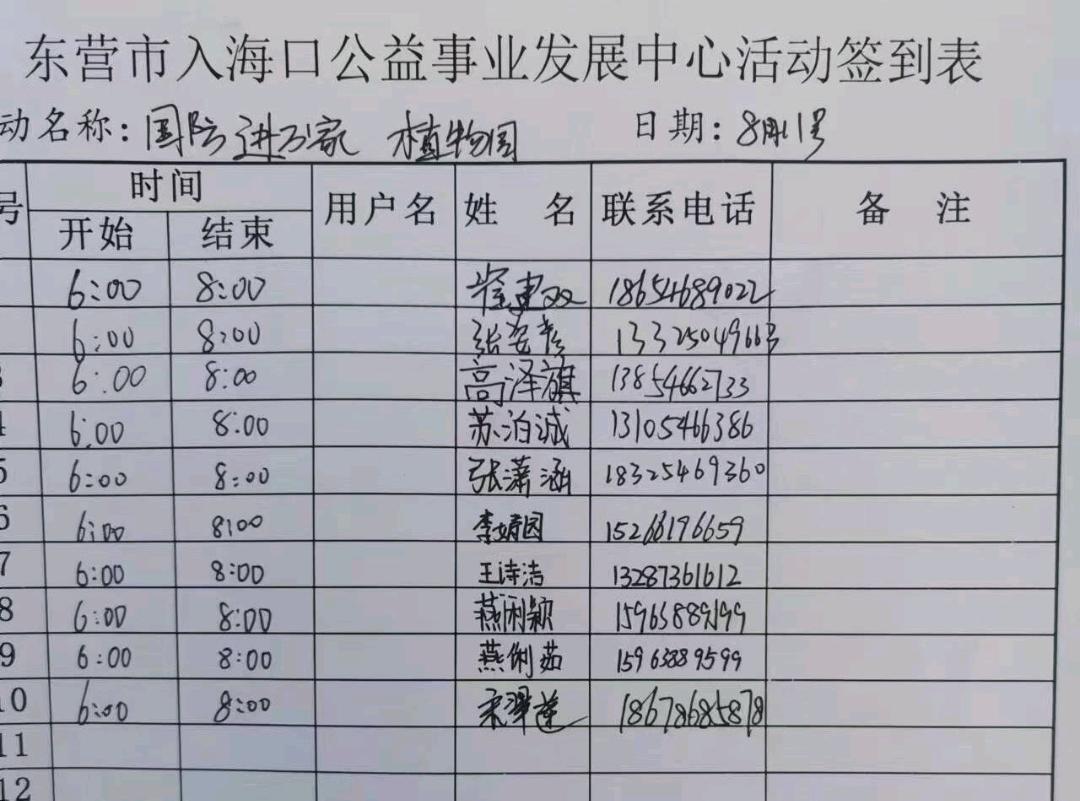 东营市入海口公益事业发展中心活动签到表
动名称：国际进万家 植物园 日期：8月11号
号 时间 用户名 姓 名 联系电话 备 注
开始 结束
6:00 8:00 崔建双 18654689022
6:00 8:00 张安彦 13325049663
3 6:00 8:00 高泽旗 13854662733
4 6:00 8:00 苏泊诚 13105466386
5 6:00 8:00 张潇涵 18325469360
6 6:00 8:00 李婧园 15266196659
7 6:00 8:00 王诗洁 13287361612
8 6:00 8:00 燕俐颖 15963889199
9 6:00 8:00 燕俐茹 15963889599
10 6:00 8:00 18678685878
11
12